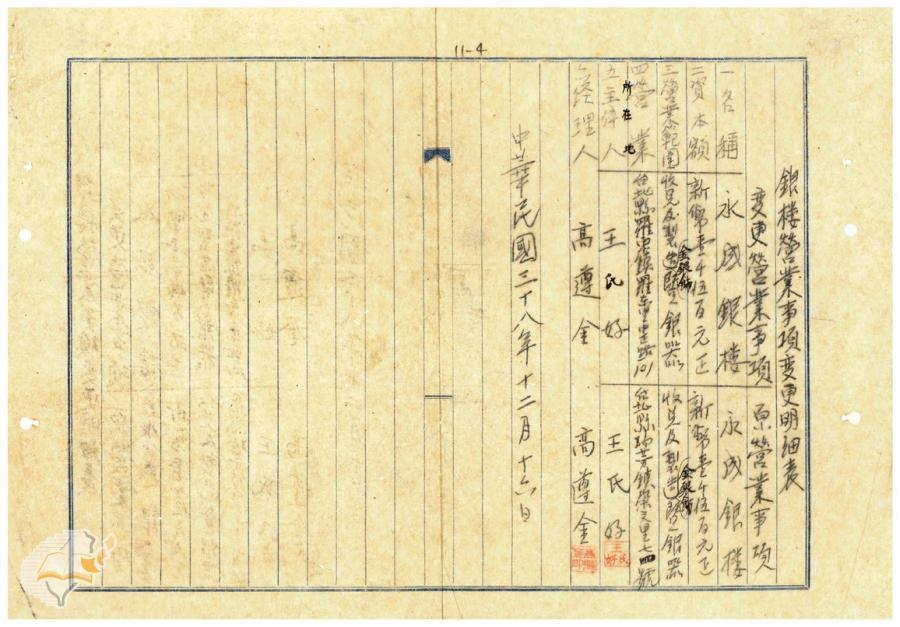 11-4
銀楼營業事項变更明細表
变更營業事項 原營業事項
一名稱 永成銀楼 永成銀楼
二資本額 新幣壹千伍百元正 新幣壹千伍百元正
三營業範圍 收兌及製造金銀飾銀器 收兌及製造金銀飾銀器
四營業所在地 台北縣羅東鎮羅東里路101 台北縣瑞芳鎮里七四號
五主体人 王氏好 王氏好
六經理人 高遵金 高遵金
中華民國三十八年十二月十六日